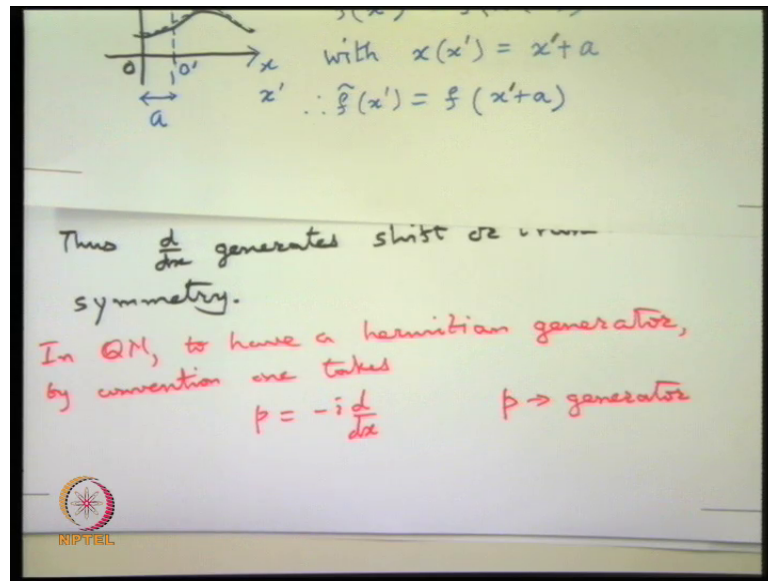 with x(x') = x'+a
O O' x
x' ∴ f̃(x') = f (x'+a)
a
Thus d/dx generates shift or
symmetry.
In QM, to have a hermitian generator,
by convention one takes
p = -i d/dx p → generator
NPTEL